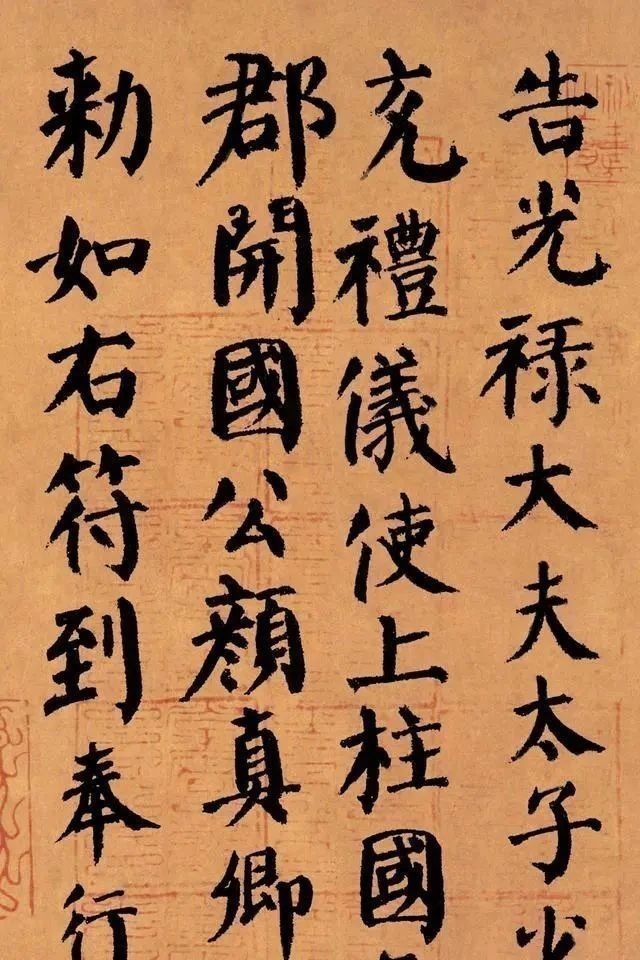 告光禄大夫太子少
充禮儀使上柱國
郡開國公顏真卿
勅如右符到奉行